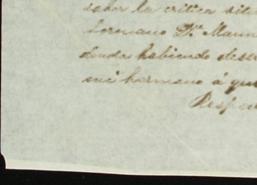 sobre la critica situ
hermano Dn. Manu
deuda habiendo dese
mi hermano á qu
Respe